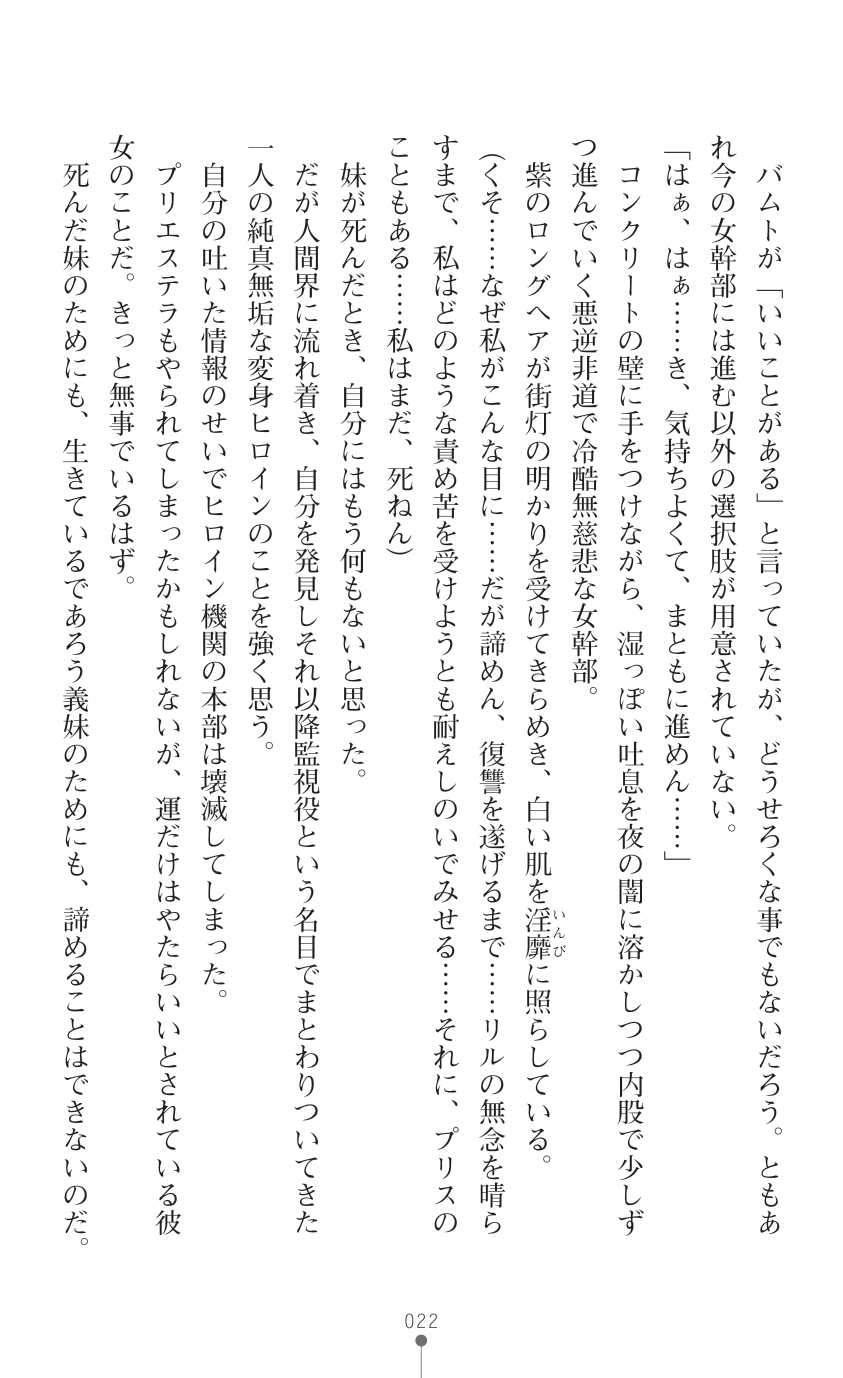 バムトが「いいことがある」と言っていたが、どうせろくな事でもないだろう。ともあ
れ今の女幹部には進む以外の選択肢が用意されていない。
「はぁ、はぁ……き、気持ちよくて、まともに進めん……」
コンクリートの壁に手をつけながら、湿っぽい吐息を夜の闇に溶かしつつ内股で少しず
つ進んでいく悪逆非道で冷酷無慈悲な女幹部。
紫のロングヘアが街灯の明かりを受けてきらめき、白い肌を淫靡いんびに照らしている。
(くそ……なぜ私がこんな目に……だが諦めん、復讐を遂げるまで……リルの無念を晴ら
すまで、私はどのような責め苦を受けようとも耐えしのいでみせる……それに、プリスの
こともある……私はまだ、死ねん)
妹が死んだとき、自分にはもう何もないと思った。
だが人間界に流れ着き、自分を発見しそれ以降監視役という名目でまとわりついてきた
一人の純真無垢な変身ヒロインのことを強く思う。
自分の吐いた情報のせいでヒロイン機関の本部は壊滅してしまった。
プリエステラもやられてしまったかもしれないが、運だけはやたらいいとされている彼
女のことだ。きっと無事でいるはず。
死んだ妹のためにも、生きているであろう義妹のためにも、諦めることはできないのだ。
022